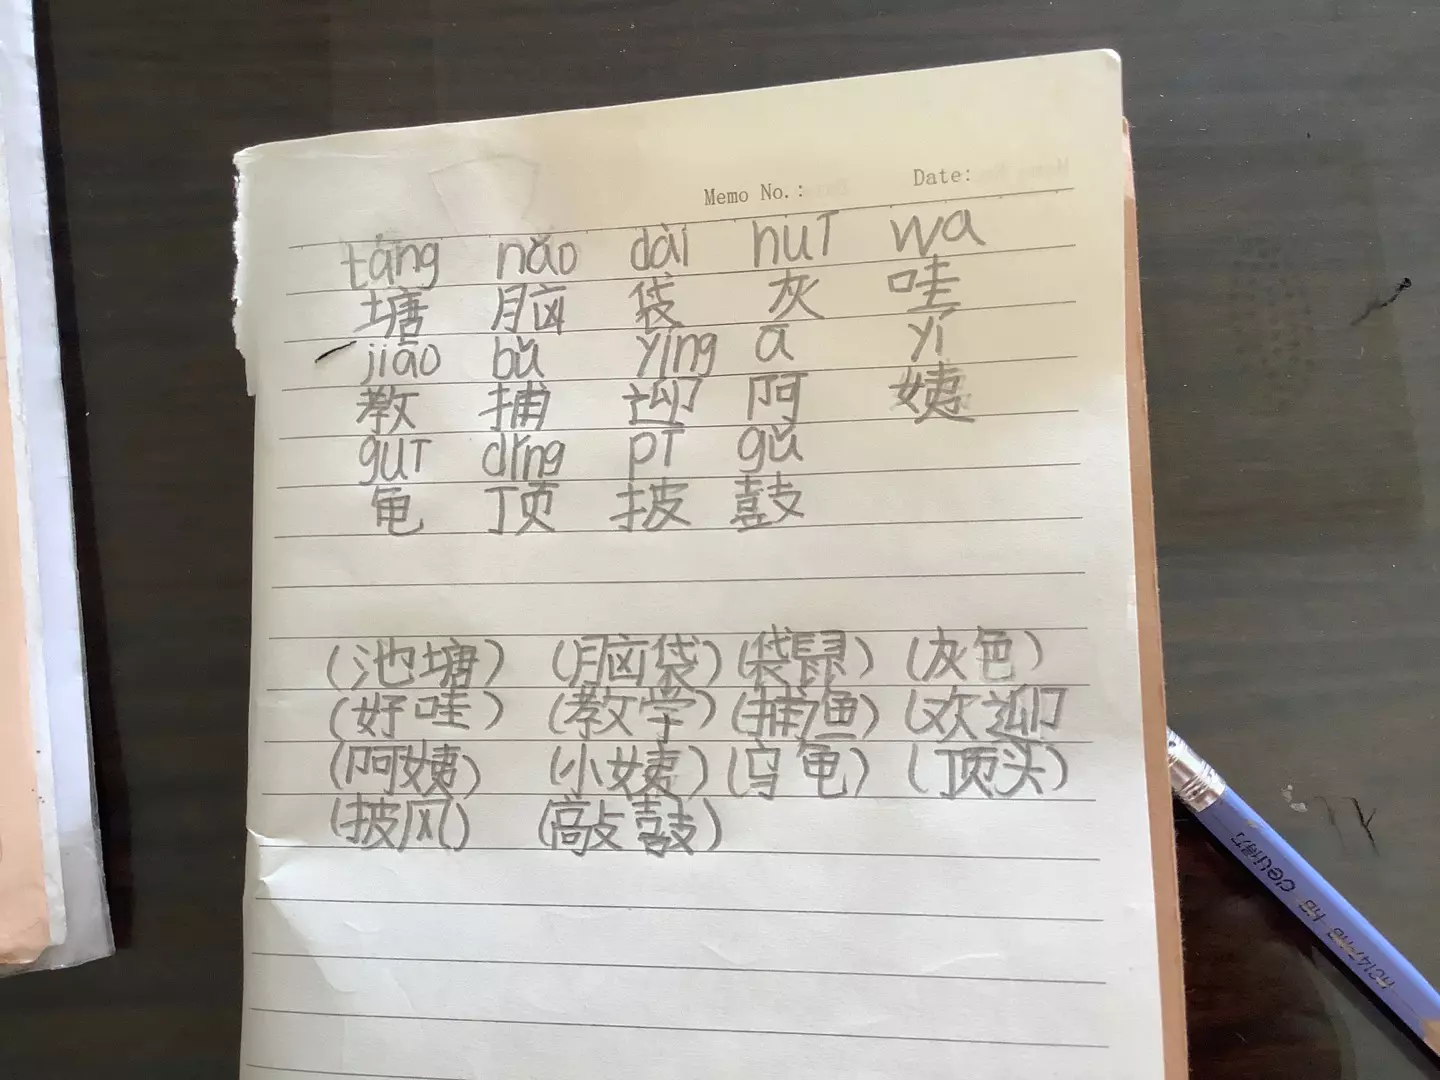 Memo No.: Date:
táng nǎo dài huī wa
塘 脑 袋 灰 哇
jiāo bǔ yíng ā yí
教 捕 迎 阿 姨
guī dǐng pī gǔ
龟 顶 披 鼓
(池塘) (脑袋) (袋鼠) (灰色)
(好哇) (教学) (捕鱼) (欢迎
(阿姨) (小姨) (乌龟) (顶头)
(披风) (敲鼓)
deli得力